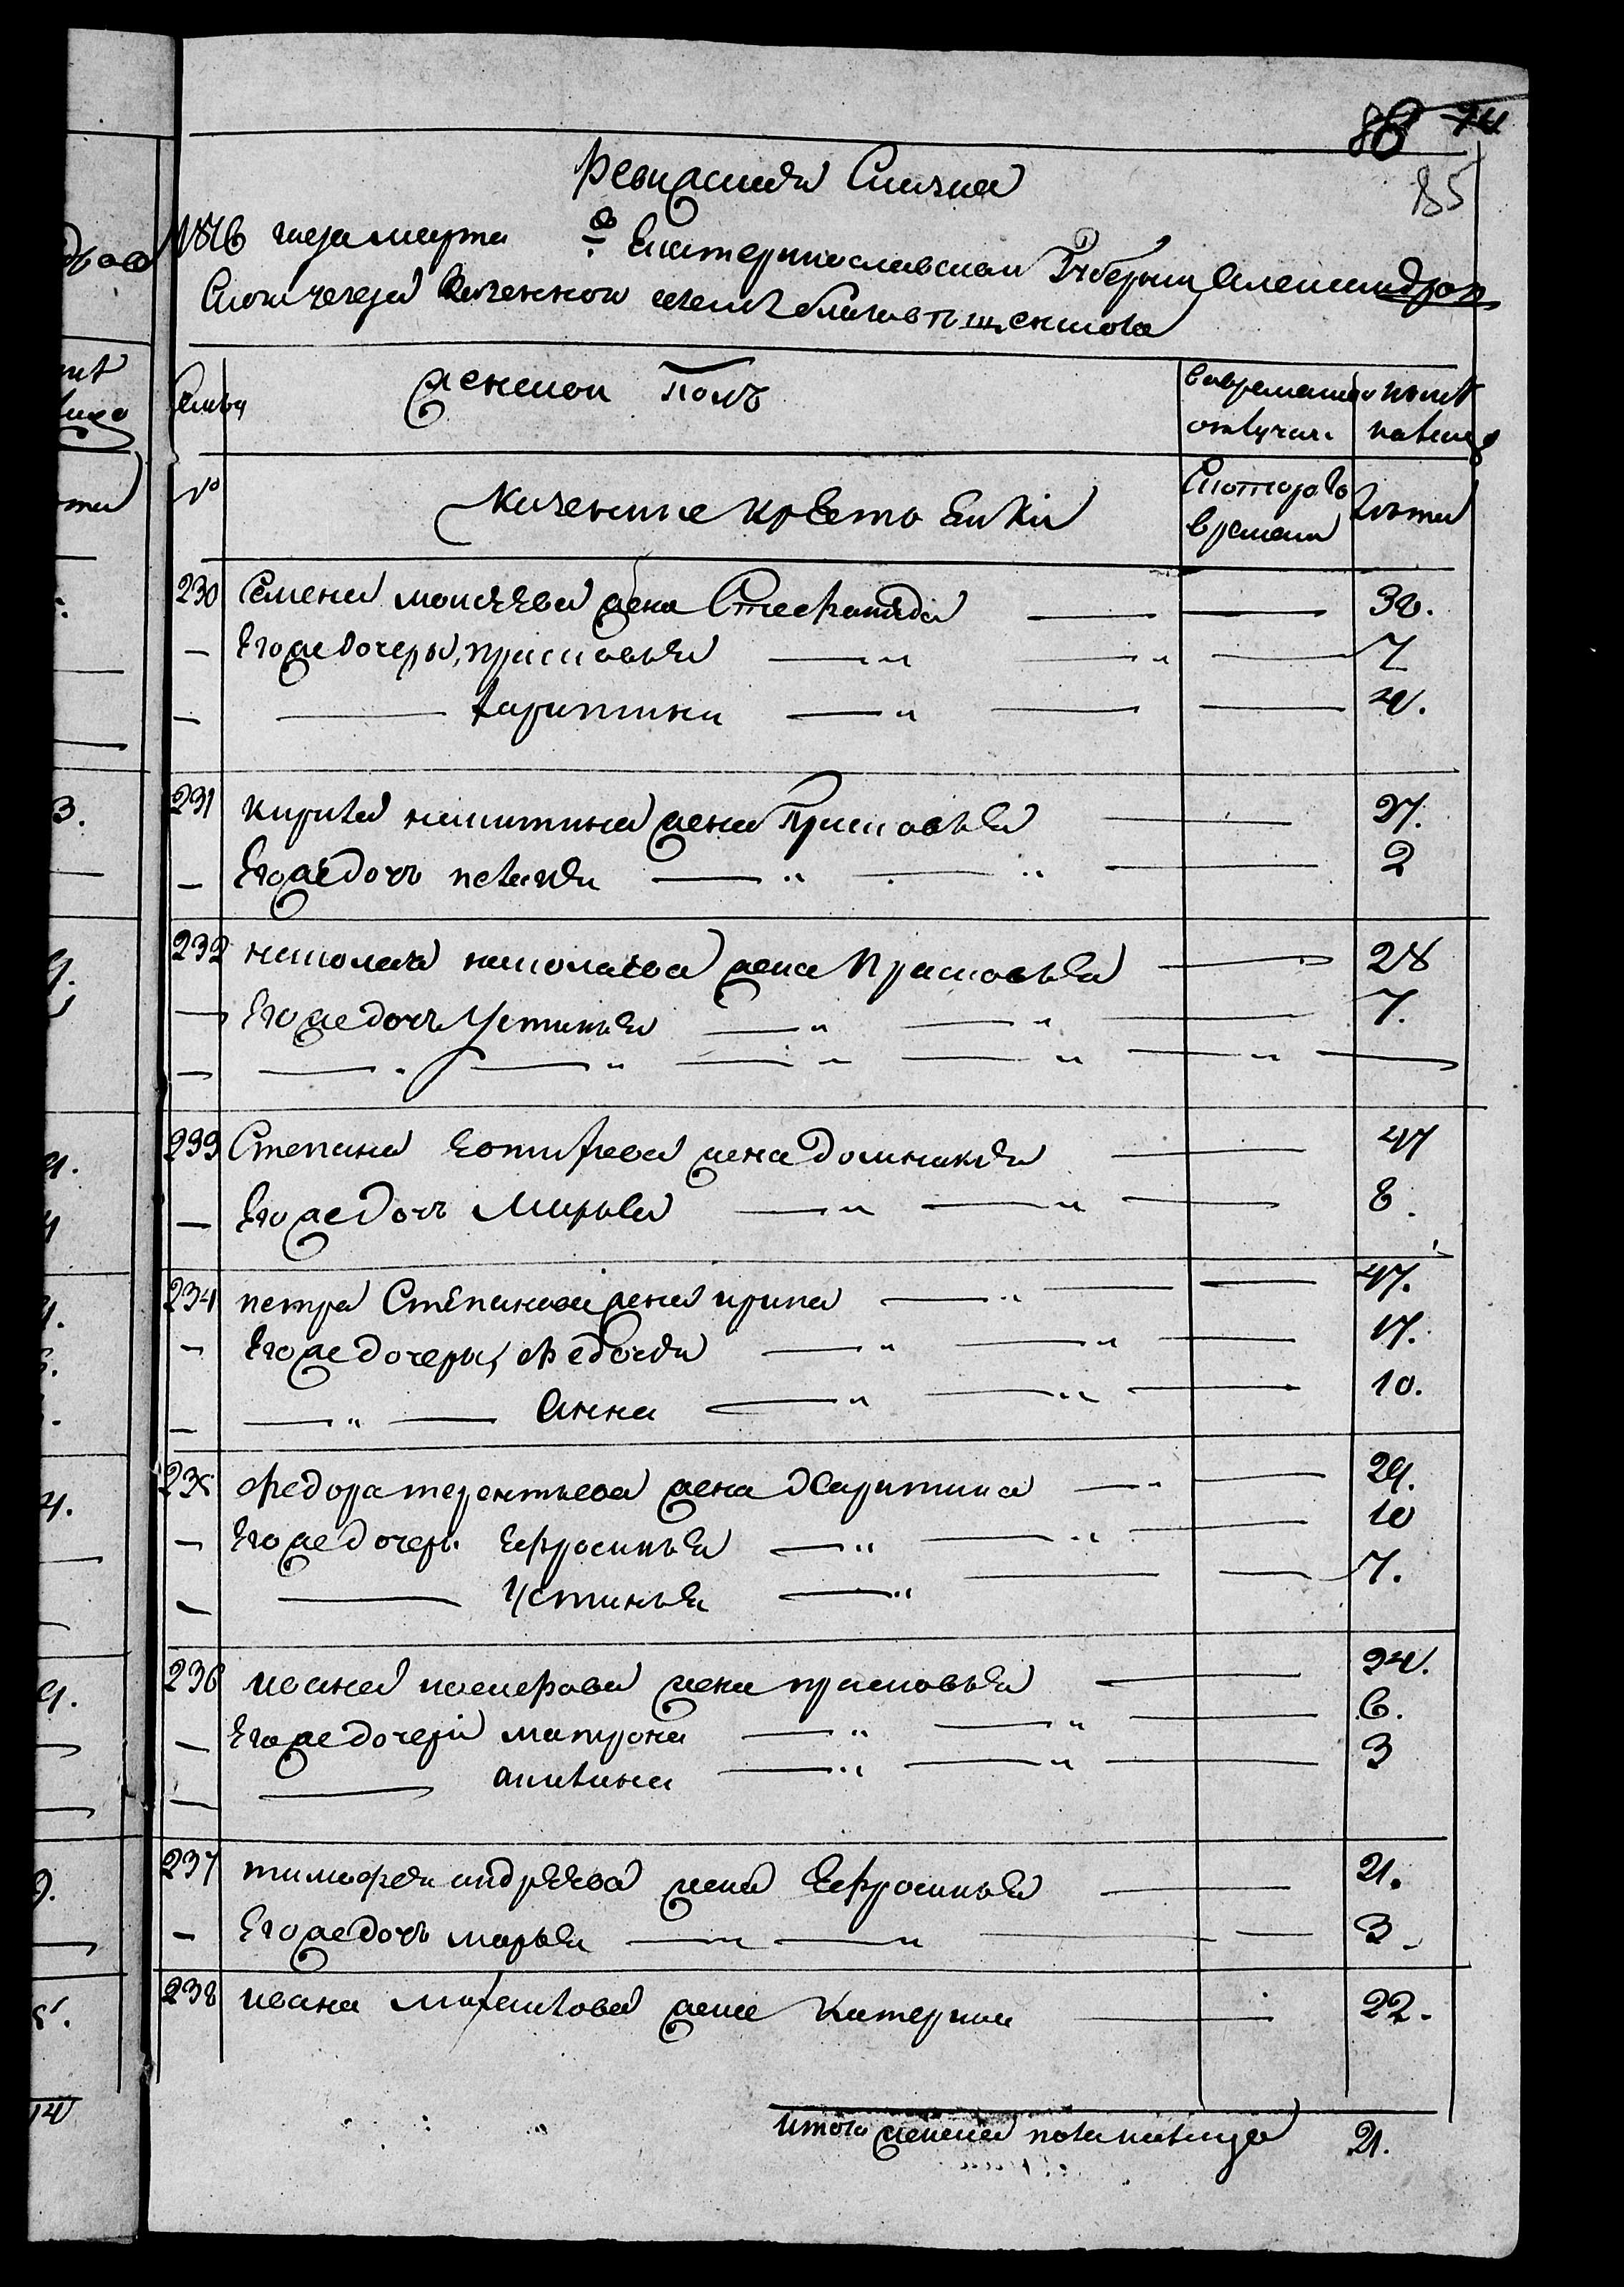 86 74
85
Ревизская Сказка
1816 года марта " Екатеринославской Губернии Александров
Ского уезда Казенного селения благовещенскова
Семьи
женской полъ
вовременной отлучки
ныне налицо
№
Казенные крестьянки
Скоторого времени
Лета
230 Семена моисеева жена Степанида 30.
— Егоже дочери, прасковья 7
— Харитина 4.
231 кирила никитина жена Прасковья 27.
— Егоже дочь пелагея 2
232 николая николаева жена Прасковья 28
— Егоже дочь Устинья 7.
233 Степана жена домникия 47
— Егоже дочь Марья 8.
234 петра Степанова жена ирина 47.
— Егоже дочери, Федосия 17.
— Анна 10.
235 Федора терентьева жена Харитина 29.
— Егоже дочери Ефросинья 10
— Устинья 7.
236 ивана жена прасковья 24.
— Егоже дочери матрона 6.
— акилина 3
237 тимофея андреева жена Ефросинья 21.
— Егоже дочь марья 3.
238 ивана Михайлова жена Катерина 22.
Итого женска пола налицо 21.